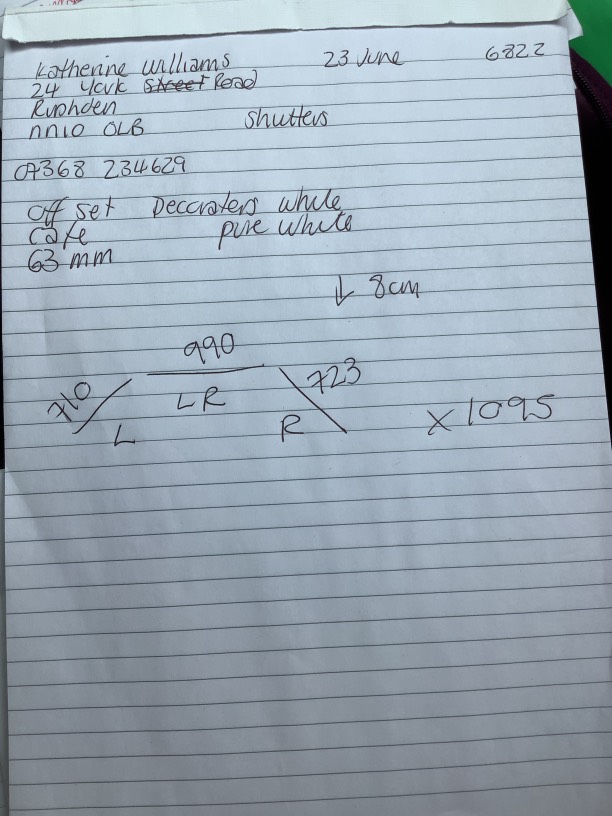 Katherine Williams 23 June 6822
24 York Street Road
Rushden
NN10 0LB Shutters
07368 234629
Off set Decoraters white
Cafe pure white
63 mm
↓ 8cm
990
710 723
L R
L R x 1095